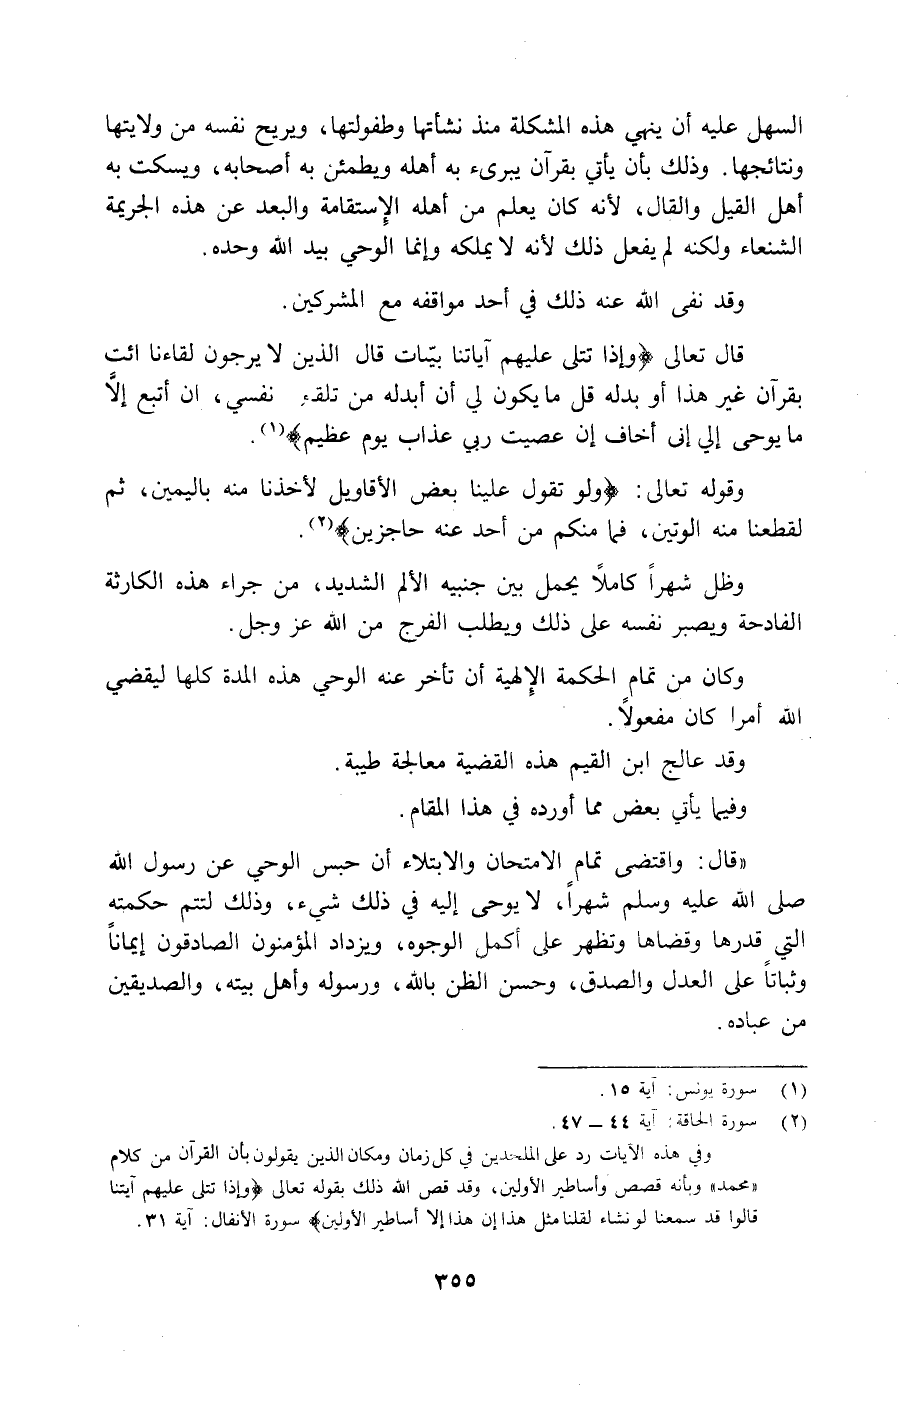 السهل عليه أن ينهي هذه المشكلة منذ نشأتها وطفولتها، ويريح نفسه من ولايتها
ونتائجها. وذلك بأن يأتي بقرآن يبرىء به أهله ويطمئن به أصحابه، ويسكت به
أهل القيل والقال، لأنه كان يعلم من أهله الإستقامة والبعد عن هذه الجريمة
الشنعاء ولكنه لم يفعل ذلك لأنه لا يملكه وإنما الوحي بيد الله وحده.
وقد نفى الله عنه ذلك في أحد مواقفه مع المشركين.
قال تعالى ﴿وإذا تتلى عليهم آياتنا بيّنات قال الذين لا يرجون لقاءنا ائت
بقرآن غير هذا أو بدله قل ما يكون لي أن أبدله من تلقء نفسي، ان أتبع إلاَّ
ما يوحى إلي إنى أخاف إن عصيت ربي عذاب يوم عظيم﴾(١).
وقوله تعالى: ﴿ولو تقول علينا بعض الأقاويل لأخذنا منه باليمين، ثم
لقطعنا منه الوتين، فما منكم من أحد عنه حاجزين﴾(٢).
وظل شهراً كاملاً يحمل بين جنبيه الألم الشديد، من جراء هذه الكارثة
الفادحة ويصبر نفسه على ذلك ويطلب الفرج من الله عز وجل.
وكان من تمام الحكمة الإلهية أن تأخر عنه الوحي هذه المدة كلها ليقضي
الله أمرا كان مفعولاً.
وقد عالج ابن القيم هذه القضية معالجة طيبة.
وفيما يأتي بعض مما أورده في هذا المقام.
«قال: واقتضى تمام الامتحان والابتلاء أن حبس الوحي عن رسول الله
صلى الله عليه وسلم شهراً، لا يوحى إليه في ذلك شيء، وذلك لتتم حكمته
التي قدرها وقضاها وتظهر على أكمل الوجوه، ويزداد المؤمنون الصادقون إيماناً
وثباتاً على العدل والصدق، وحسن الظن بالله، ورسوله وأهل بيته، والصديقين
من عباده.
(١) سورة يونس: آية ١٥.
(٢) سورة الحاقة: آية ٤٤ ــ ٤٧.
وفي هذه الآيات رد على الملحدين في كل زمان ومكان الذين يقولون بأن القرآن من كلام
«محمد» وبأنه قصص وأساطير الأولين، وقد قص الله ذلك بقوله تعالى ﴿وإذا تتلى عليهم آيتنا
قالوا قد سمعنا لو نشاء لقلنا مثل هذا إن هذا إلا أساطير الأولين﴾ سورة الأنفال: آية ٣١.
٣٥٥